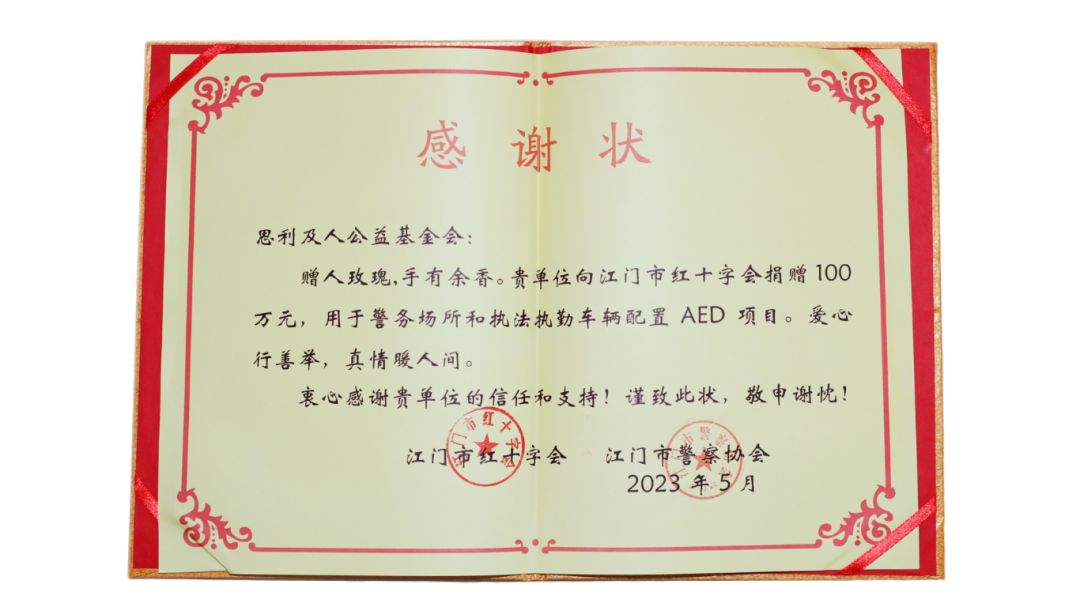 感谢状
思利及人公益基金会：
赠人玫瑰，手有余香。贵单位向江门市红十字会捐赠100
万元，用于警务场所和执法执勤车辆配置 AED 项目。爱心
行善举，真情暖人间。
衷心感谢贵单位的信任和支持！谨致此状，敬申谢忱！
江门市红十字会 江门市警察协会
2023 年 5 月
江门市红十字会